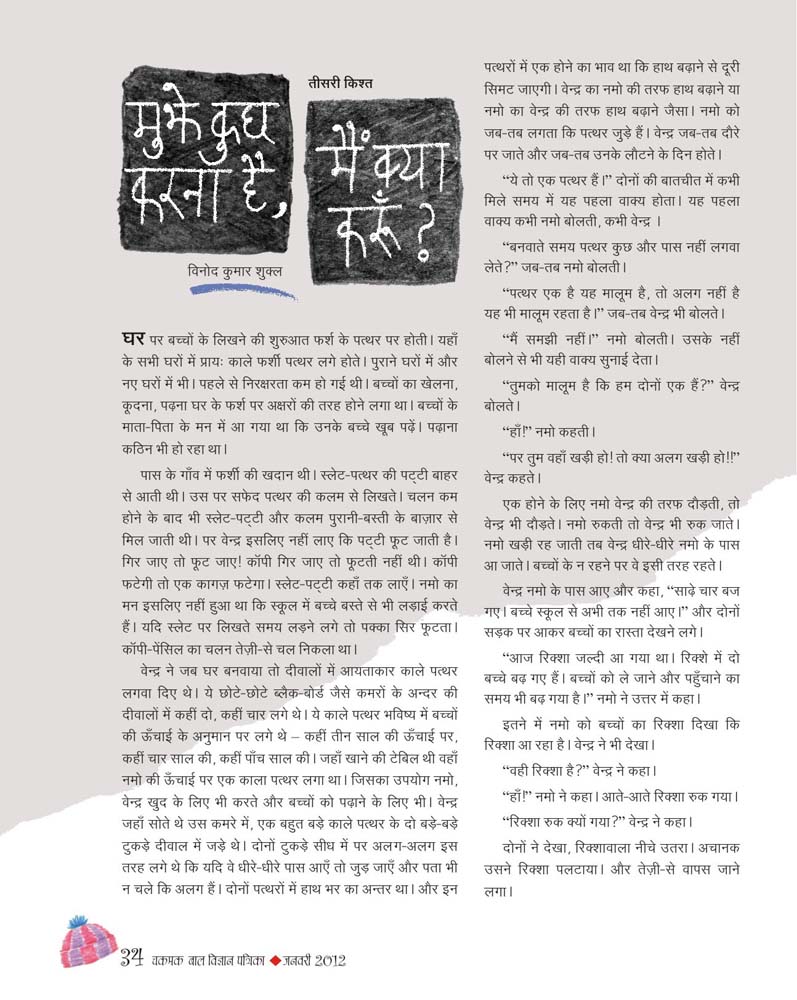 मुझे कुछ
करना है,
तीसरी किश्त
मैं क्या
करूँ?
विनोद कुमार शुक्ल
घर पर बच्चों के लिखने की शुरुआत फर्श के पत्थर पर होती। यहाँ
के सभी घरों में प्रायः काले फर्शी पत्थर लगे होते। पुराने घरों में और
नए घरों में भी। पहले से निरक्षरता कम हो गई थी। बच्चों का खेलना,
कूदना, पढ़ना घर के फर्श पर अक्षरों की तरह होने लगा था। बच्चों के
माता-पिता के मन में आ गया था कि उनके बच्चे खूब पढ़ें। पढ़ाना
कठिन भी हो रहा था।
पास के गाँव में फर्शी की खदान थी। स्लेट-पत्थर की पट्टी बाहर
से आती थी। उस पर सफेद पत्थर की कलम से लिखते। चलन कम
होने के बाद भी स्लेट-पट्टी और कलम पुरानी-बस्ती के बाज़ार से
मिल जाती थी। पर वेन्द्र इसलिए नहीं लाए कि पट्टी फूट जाती है।
गिर जाए तो फूट जाए! कॉपी गिर जाए तो फूटती नहीं थी। कॉपी
फटेगी तो एक कागज़ फटेगा। स्लेट-पट्टी कहाँ तक लाएँ। नमो का
मन इसलिए नहीं हुआ था कि स्कूल में बच्चे बस्ते से भी लड़ाई करते
हैं। यदि स्लेट पर लिखते समय लड़ने लगे तो पक्का सिर फूटता।
कॉपी-पेंसिल का चलन तेज़ी-से चल निकला था।
वेन्द्र ने जब घर बनवाया तो दीवालों में आयताकार काले पत्थर
लगवा दिए थे। ये छोटे-छोटे ब्लैक-बोर्ड जैसे कमरों के अन्दर की
दीवालों में कहीं दो, कहीं चार लगे थे। ये काले पत्थर भविष्य में बच्चों
की ऊँचाई के अनुमान पर लगे थे – कहीं तीन साल की ऊँचाई पर,
कहीं चार साल की, कहीं पाँच साल की। जहाँ खाने की टेबिल थी वहाँ
नमो की ऊँचाई पर एक काला पत्थर लगा था। जिसका उपयोग नमो,
वेन्द्र खुद के लिए भी करते और बच्चों को पढ़ाने के लिए भी। वेन्द्र
जहाँ सोते थे उस कमरे में, एक बहुत बड़े काले पत्थर के दो बड़े-बड़े
टुकड़े दीवाल में जड़े थे। दोनों टुकड़े सीध में पर अलग-अलग इस
तरह लगे थे कि यदि वे धीरे-धीरे पास आएँ तो जुड़ जाएँ और पता भी
न चले कि अलग हैं। दोनों पत्थरों में हाथ भर का अन्तर था। और इन
पत्थरों में एक होने का भाव था कि हाथ बढ़ाने से दूरी
सिमट जाएगी। वेन्द्र का नमो की तरफ हाथ बढ़ाने या
नमो का वेन्द्र की तरफ हाथ बढ़ाने जैसा। नमो को
जब-तब लगता कि पत्थर जुड़े हैं। वेन्द्र जब-तब दौरे
पर जाते और जब-तब उनके लौटने के दिन होते।
“ये तो एक पत्थर हैं।” दोनों की बातचीत में कभी
मिले समय में यह पहला वाक्य होता। यह पहला
वाक्य कभी नमो बोलती, कभी वेन्द्र ।
“बनवाते समय पत्थर कुछ और पास नहीं लगवा
लेते?” जब-तब नमो बोलती।
“पत्थर एक है यह मालूम है, तो अलग नहीं है
यह भी मालूम रहता है।” जब-तब वेन्द्र भी बोलते।
“मैं समझी नहीं।” नमो बोलती। उसके नहीं
बोलने से भी यही वाक्य सुनाई देता।
“तुमको मालूम है कि हम दोनों एक हैं?” वेन्द्र
बोलते।
“हाँ!” नमो कहती।
“पर तुम वहाँ खड़ी हो! तो क्या अलग खड़ी हो!!”
वेन्द्र कहते।
एक होने के लिए नमो वेन्द्र की तरफ दौड़ती, तो
वेन्द्र भी दौड़ते। नमो रुकती तो वेन्द्र भी रुक जाते।
नमो खड़ी रह जाती तब वेन्द्र धीरे-धीरे नमो के पास
आ जाते। बच्चों के न रहने पर वे इसी तरह रहते।
वेन्द्र नमो के पास आए और कहा, “साढ़े चार बज
गए। बच्चे स्कूल से अभी तक नहीं आए।” और दोनों
सड़क पर आकर बच्चों का रास्ता देखने लगे।
“आज रिक्शा जल्दी आ गया था। रिक्शे में दो
बच्चे बढ़ गए हैं। बच्चों को ले जाने और पहुँचाने का
समय भी बढ़ गया है।” नमो ने उत्तर में कहा।
इतने में नमो को बच्चों का रिक्शा दिखा कि
रिक्शा आ रहा है। वेन्द्र ने भी देखा।
“वही रिक्शा है?” वेन्द्र ने कहा।
“हाँ!” नमो ने कहा। आते-आते रिक्शा रुक गया।
“रिक्शा रुक क्यों गया?” वेन्द्र ने कहा।
दोनों ने देखा, रिक्शावाला नीचे उतरा। अचानक
उसने रिक्शा पलटाया। और तेज़ी-से वापस जाने
लगा।
34 चकमक बाल विज्ञान पत्रिका ◆ जनवरी 2012